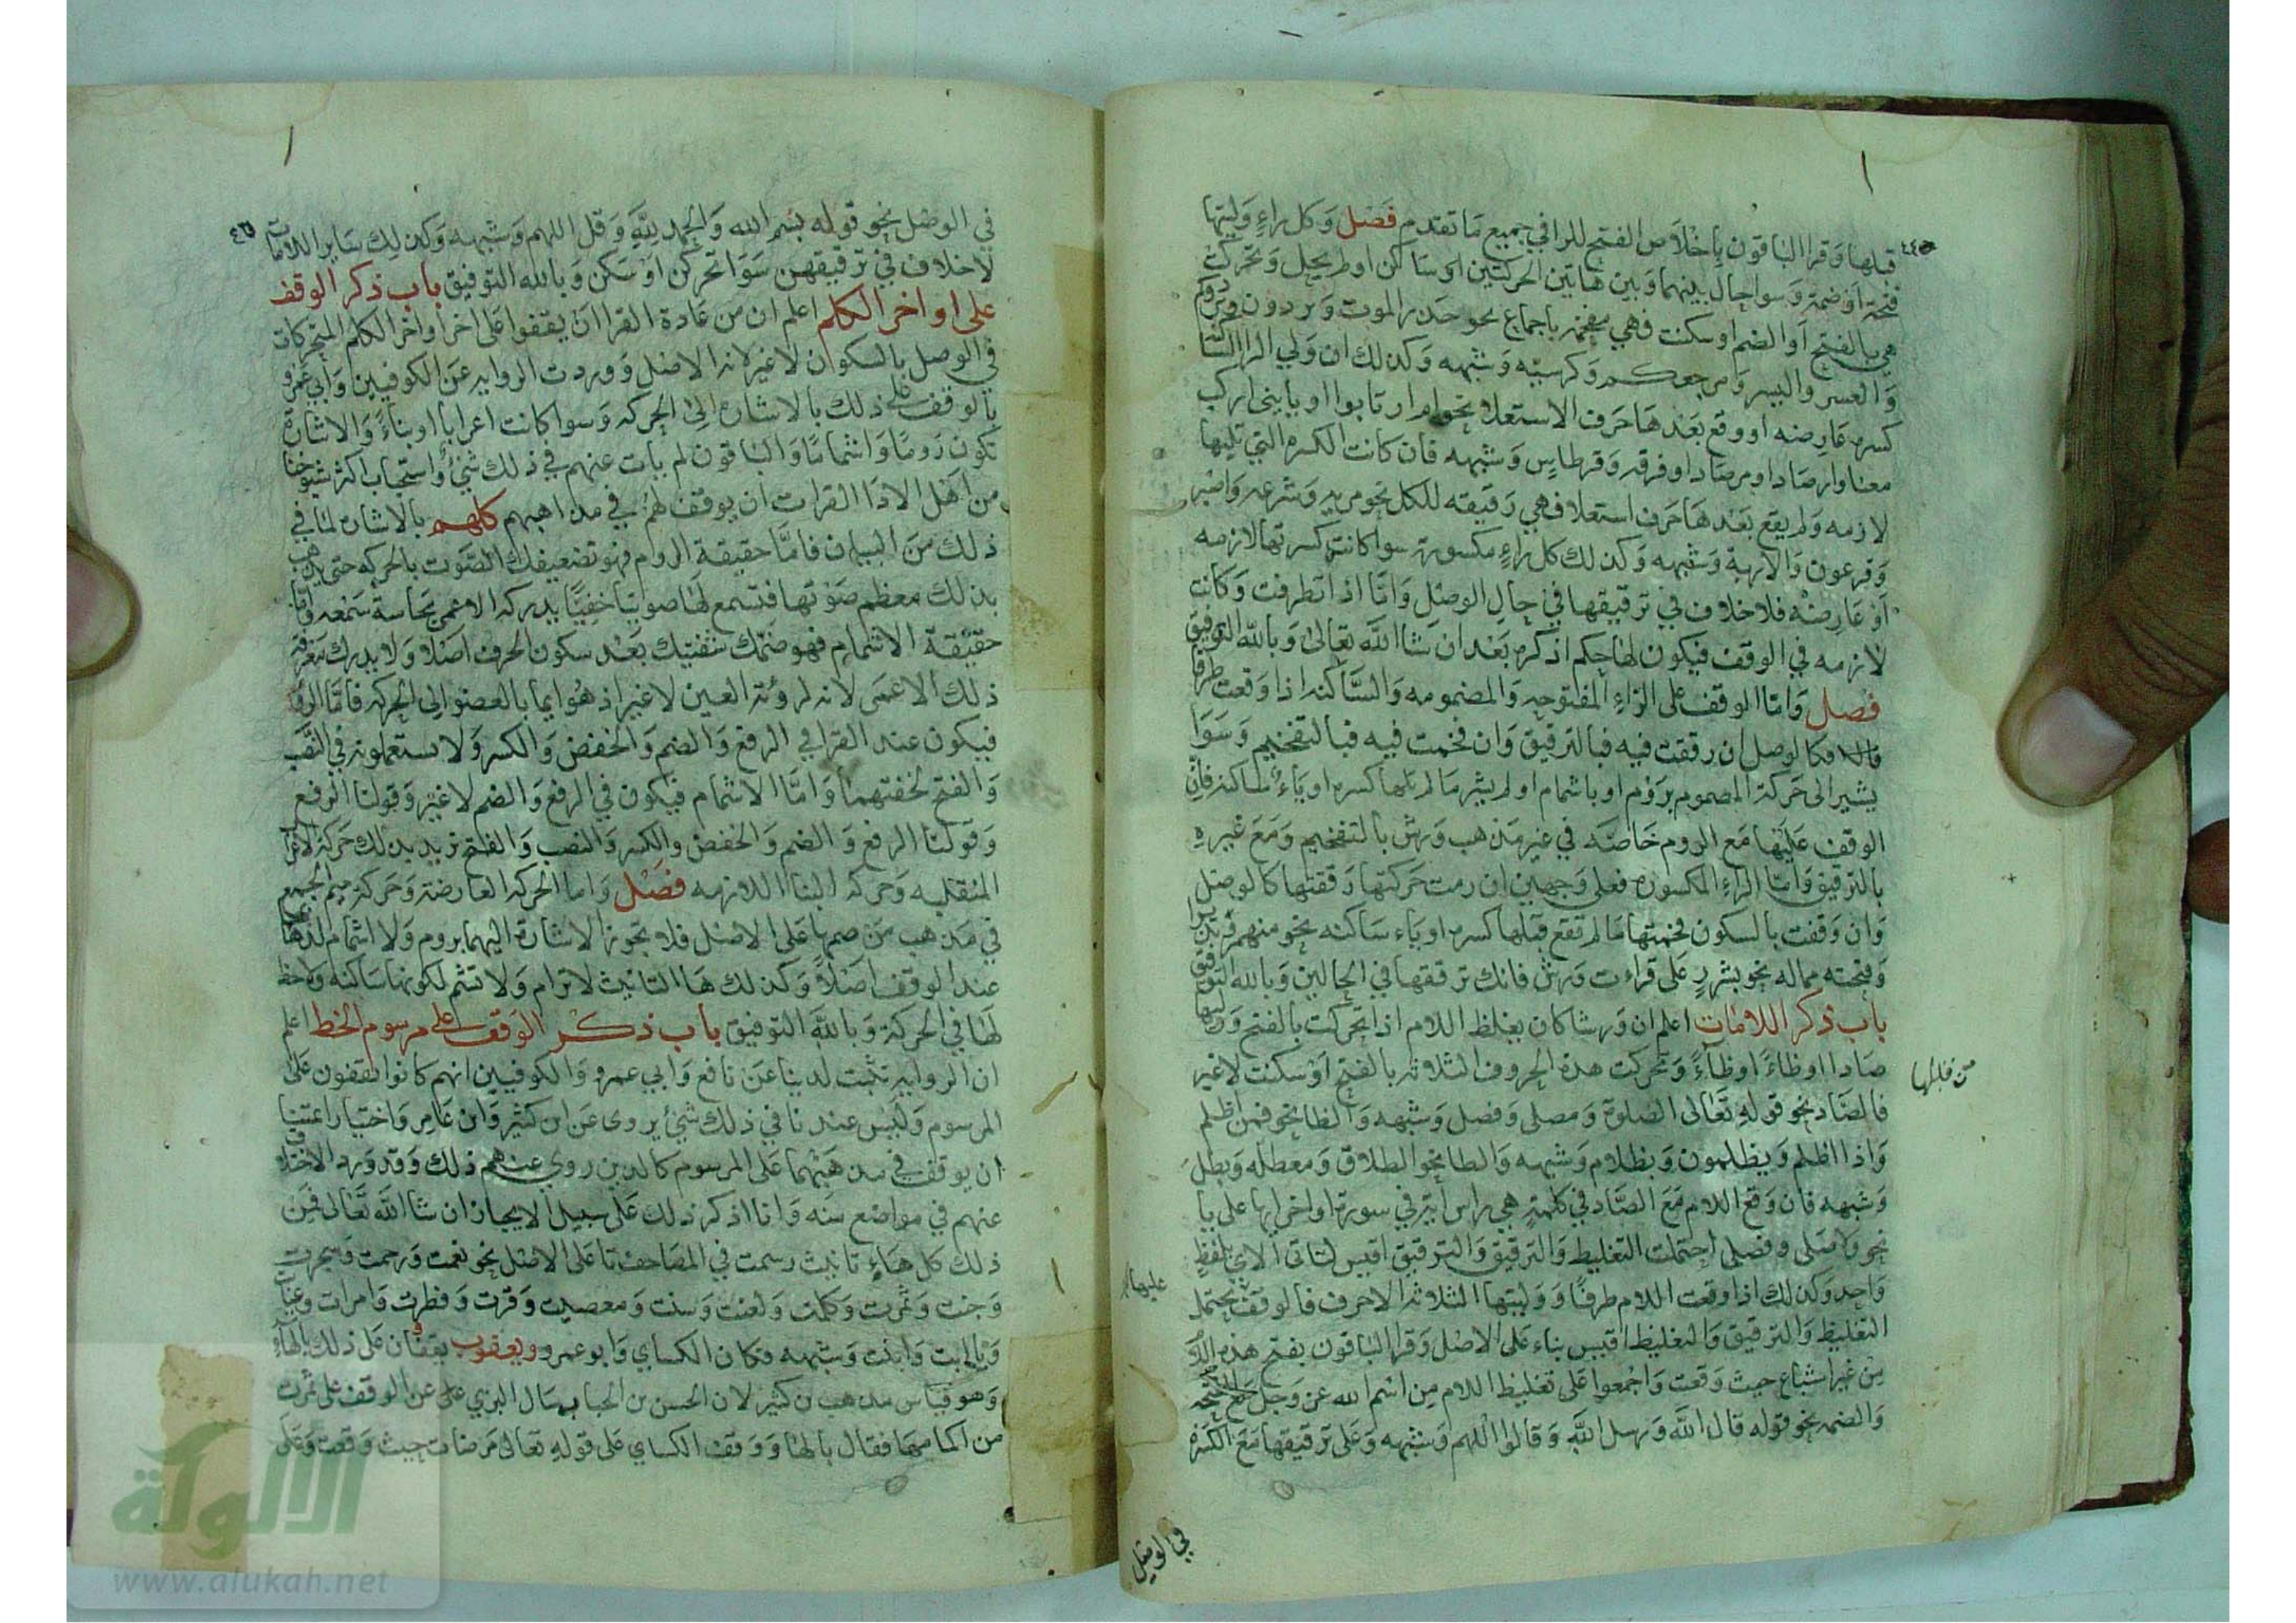 قبلها وقرا الباقون باخلاص الفتح للرا في جميع ما تقدم فصل وكل راء وليتها
فتحة او ضمة وسوا حال بينهما وبين هاتين الحركتين اي ساكن او لم يحل وتحركت
هي بالفتح او الضم او سكنت فهي مفخمة باجماع نحو حذر الموت ويردون
والعسر واليسر ومرجعكم وكرسيه وشبهه وكذلك ان ولي الرا الساكنة
كسره عارضه او وقع بعدها حرف الاستعلا نحو ام ارتابوا او يا بني اركب
معنا وارصادا ومرصادا وفرقه وقرطاس وشبهه فان كانت الكسره التي تليها
لازمه ولم يقع بعدها حرف استعلا فهي رقيقه للكل نحو مريه وشرعه واصبر
وفرعون والاربة وشبهه وكذلك كل راء مكسورة سوا كانت كسرتها لازمه
او عارضه فلا خلاف في ترقيقها في حال الوصل واما اذا تطرفت وكانت
لازمه في الوقف فيكون لها حكم اذكره بعد ان شا الله تعالى وبالله التوفيق
فصل واما الوقف على الراء المفتوحه والمضمومه والساكنه اذا وقعت طرفا
فكالوصل ان رققت فيه فبالترقيق وان فخمت فيه فبالتفخيم وسوا
يشير الى حركة المضموم بروم او باشمام او لم يشر ما لم تلها كسره او ياء ساكنه فان
الوقف عليها مع الروم خاصه في غير مذهب ورش بالتفخيم ومع غيره
بالترقيق واما الراء المكسوره فعلى وجهين ان رمت حركتها رققتها كالوصل
وان وقفت بالسكون فخمتها ما لم تقع قبلها كسره او ياء ساكنه نحو منهمر ونذير
وفتحته مماله نحو بشرر على قراءت ورش فانك ترققها في الحالين وبالله التوفيق
باب ذكر اللامات اعلم ان ورشا كان يغلظ اللام اذا تحركت بالفتح ووليها
من قبلها
صادا او ظاء او طاء وتحركت هذه الحروف الثلاثه بالفتح او سكنت لا غير
فالصاد نحو قوله تعالى الصلوة ومصلى وفصل وشبهه والظا نحو فمن اظلم
واذا اظلم ويظلمون وبظلام وشبهه والطا نحو الطلاق ومعطلة وبطل
وشبهه فان وقع اللام مع الصاد في كلمة هي راس اية في سورة اواخر ايها على يا
نحو ولا صلى وفصلى احتملت التغليظ والترقيق والترقيق اقيس لتاتى الاي بلفظ
واحد وكذلك اذا وقعت اللام طرفا ووليتها الثلاثة الاحرف فالوقف يحتمل
عليها
التغليظ والترقيق والتغليظ اقيس بناء على الاصل وقرا الباقون بفتح هذه اللام
من غير اشباع حيث وقعت واجمعوا على تغليظ اللام من اسم الله عز وجل مع الفتحه
والضمه نحو قوله قال الله ورسل الله وقالوا اللهم وشبهه وعلى ترقيقها مع الكسره
في الوصل
في الوصل نحو قوله بسم الله والحمد لله وقل اللهم وشبهه وكذلك ساير اللامات
لا خلاف في ترقيقهن سوا تحركن او سكن وبالله التوفيق باب ذكر الوقف
على اواخر الكلم اعلم ان من عادة القرا ان يقفوا على اخر اواخر الكلم المتحركات
في الوصل بالسكوان لا غير لانه الاصل ووردت الروايه عن الكوفيين وابي عمرو
بالوقف على ذلك بالاشاره الى الحركه وسوا كانت اعرابا او بناء والاشارة
تكون روما واشماما والباقون لم يات عنهم في ذلك شئ واستحباب اكثر شيوخنا
من اهل الادا القرات ان يوقف لهم في مذاهبهم كلهم بالاشارة لما في
ذلك من البيان فاما حقيقة الروام فهو تضعيفك الصوت بالحركه حتى يذهب
بذلك معظم صوتها فتسمع لها صويتا خفيا يدركه الاعمى بحاسة سمعه واما
حقيقة الاشمام فهو ضمك شفتيك بعد سكون الحرف اصلا ولا يدرك معرفة
ذلك الاعمى لانه لرؤية العين لا غير اذ هو ايما بالعضو الى الحركه فاما الروم
فيكون عند القرا في الرفع والضم والخفض والكسر ولا يستعملونه في النصب
والفتح لخفتهما واما الاشمام فيكون في الرفع والضم لا غير وقولنا الرفع
وقولنا الرفع والضم والخفض والكسر والنصب والفتح نريد بذلك حركة الاعراب
المنقلبه وحركه البنا اللازمه فصل واما الحركه العارضة وحركة ميم الجميع
في مذهب من ضمها على الاصل فلا تجوز الاشارة اليهما بروم ولا اشمام لذهابها
عند الوقف اصلا وكذلك ها التانيث لا ترام ولا تشم لكونها ساكنه ولا حظ
لها في الحركة وبالله التوفيق باب ذكر الوقف على مرسوم الخط اعلم
ان الروايه تثبت لدينا عن نافع وابي عمرو والكوفيين انهم كانوا يقفون على
المرسوم وليس عندنا في ذلك شئ يروى عن ابن كثير وابن عامر واختيار ائمتنا
ان يوقف في مذهبهما على المرسوم كالذين روي عنهم ذلك وقد ورد الاختلاف
عنهم في مواضع منه وانا اذكر ذلك على سبيل الايجاز ان شا الله تعالى فمن
ذلك كل هاء تانيث رسمت في المصاحف تا على الاصل نحو نعمت ورحمت وشجرت
وجنت وثمرت وكلمت ولعنت وسنت ومعصيت وقرت وفطرت وامرات وغيابت
ويا ابت وابنت وشبهه فكان الكساي وابو عمرو ويعقوب يقفان على ذلك بالهاء
وهو قياس مذهب بن كثير لان الحسن بن الحباب سال البزي عن الوقف على ثمرت
من اكمامها فقال بالها ووقف الكساي على قوله تعالى مرضات حيث وقعت وعلى
الالوكة
www.alukah.net